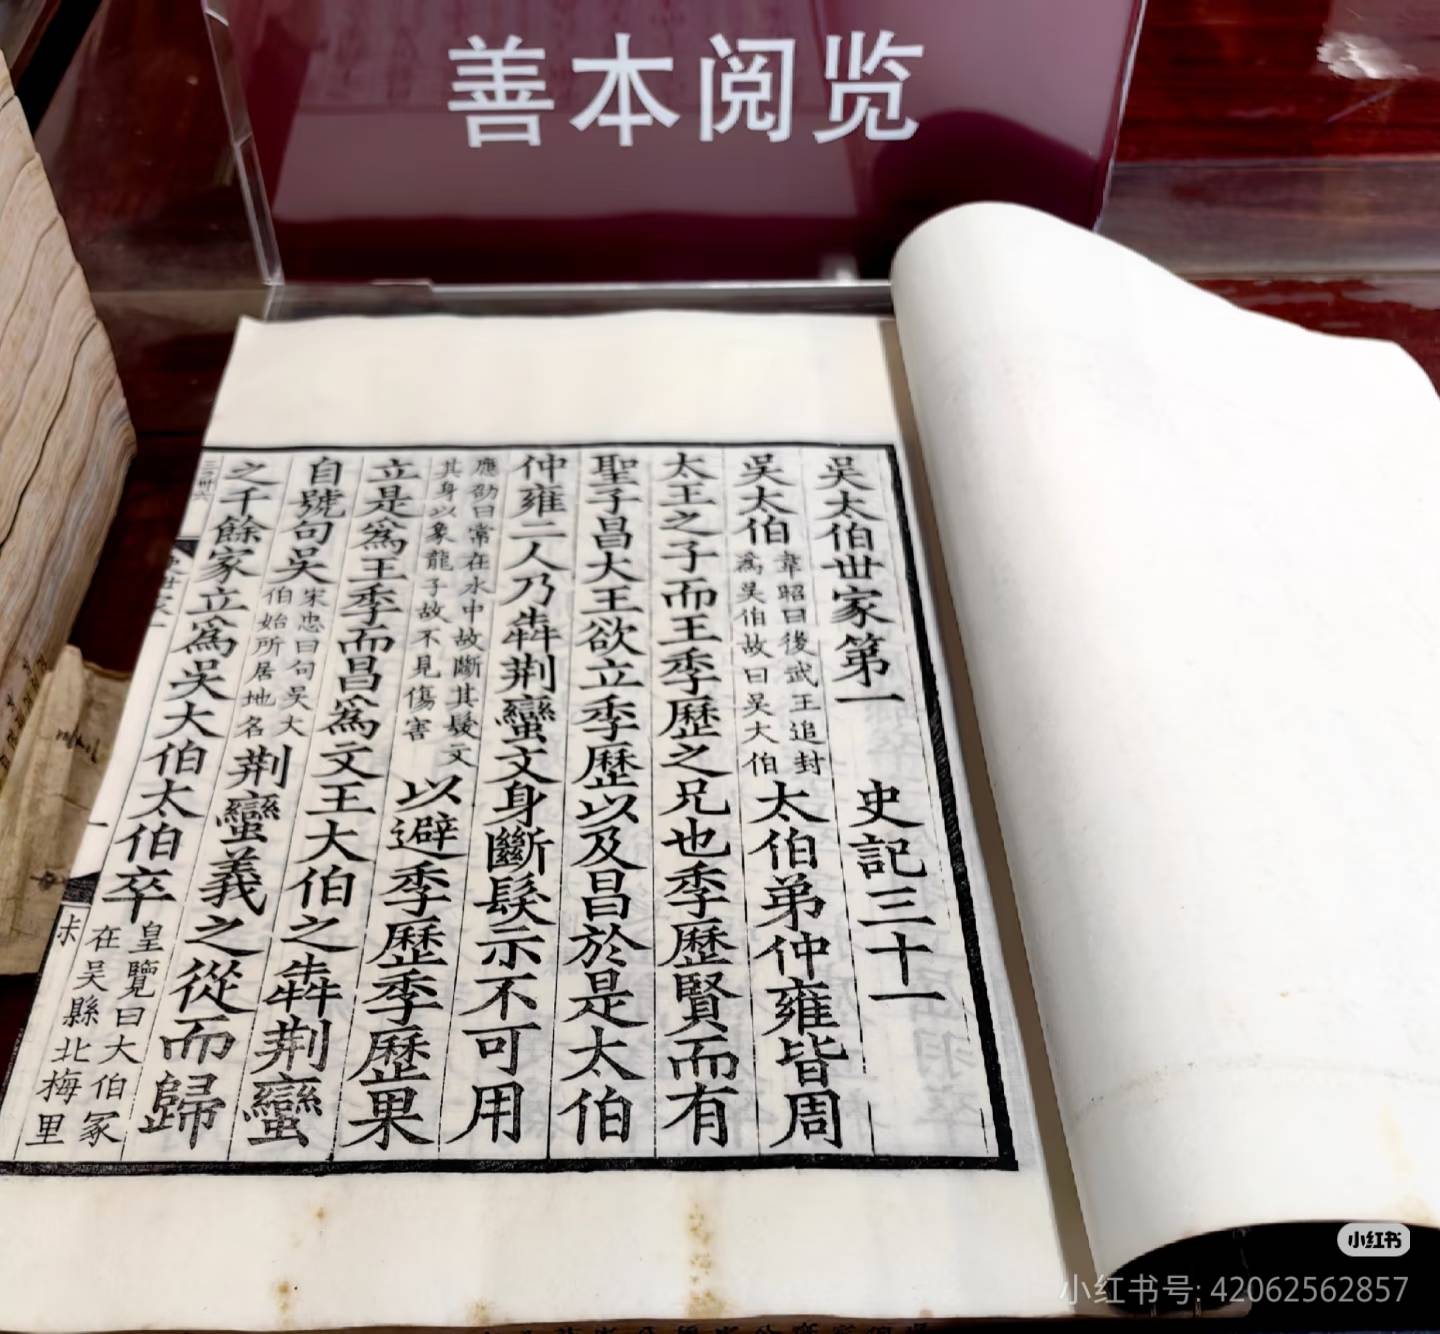 善本阅览
吳太伯世家第一 史記三十一
吳太伯
韋昭曰後武王追封
爲吴伯故曰吴大伯
太伯弟仲雍皆周
太王之子而王季歷之兄也季歷賢而有
聖子昌大王欲立季歷以及昌於是太伯
仲雍二人乃犇荆蠻文身斷髮示不可用
應劭曰常在水中故斷其髮文
其身以象龍子故不見傷害
以避季歷季歷果
立是爲王季而昌爲文王大伯之犇荆蠻
自號句吴
宋忠曰句吴大
伯始所居地名
荆蠻義之從而歸
之千餘家立爲吴大伯太伯卒
皇覽曰大伯冢
在吴縣北梅里
小红书
小红书号: 42062562857